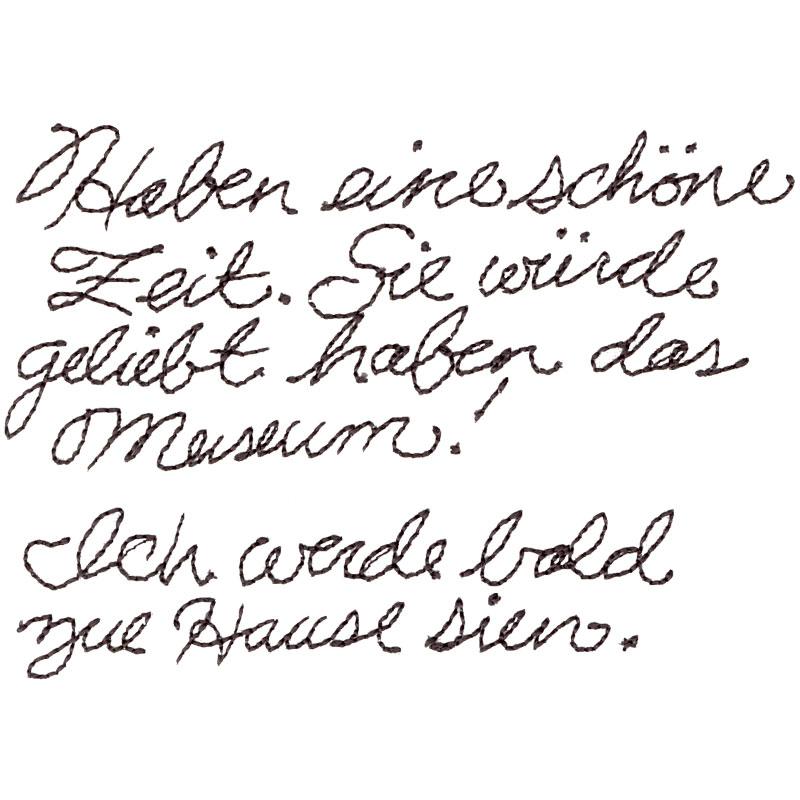 Haben eine schöne
Zeit. Sie würde
geliebt haben das
Museum!
Ich werde bald
zue Hause sien.